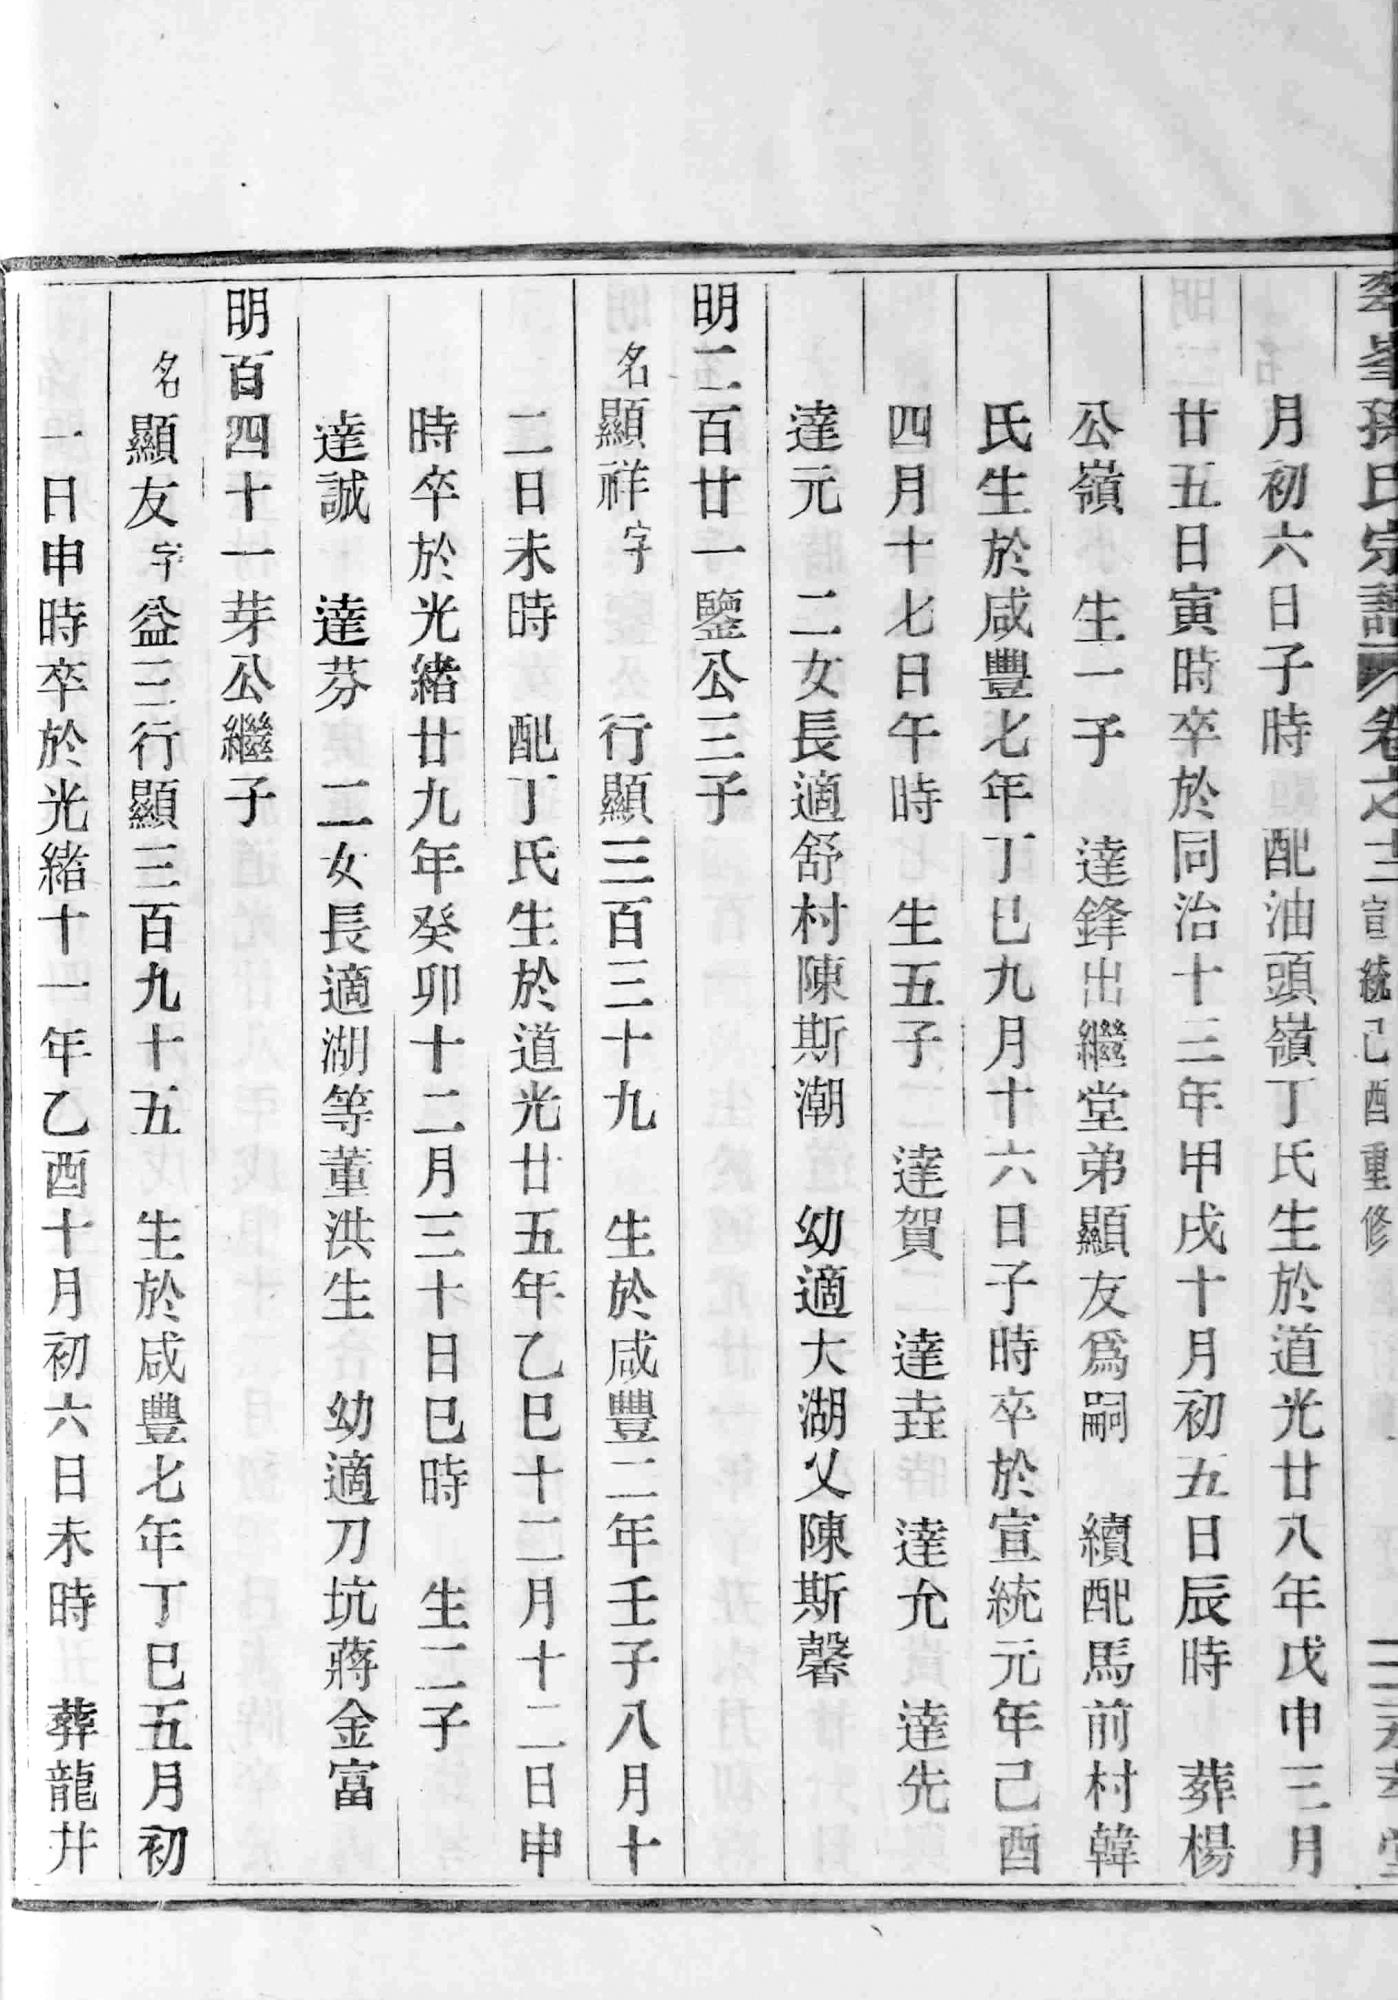 孫氏宗譜 卷之十三 宣統己酉重修 二
月初六日子時 配油頭嶺丁氏生於道光廿八年戊申三月
廿五日寅時卒於同治十三年甲戌十月初五日辰時 葬楊
公嶺 生一子 達鋒出繼堂弟顯友爲嗣 續配馬前村韓
氏生於咸豐七年丁巳九月十六日子時卒於宣統元年己酉
四月十七日午時 生五子 達賀 達垚 達允 達先
達元 二女長適舒村陳斯潮 幼適大湖乂陳斯馨
明二百廿一鑒公三子
名顯祥字 行顯三百三十九 生於咸豐二年壬子八月十
二日未時 配丁氏生於道光廿五年乙巳十二月十二日申
時卒於光緒廿九年癸卯十二月三十日巳時 生二子
達誠 達芬 二女長適湖等董洪生 幼適刀坑蔣金富
明百四十一芽公繼子
名顯友字益三行顯三百九十五 生於咸豐七年丁巳五月初
一日申時卒於光緒十一年乙酉十月初六日未時 葬龍井